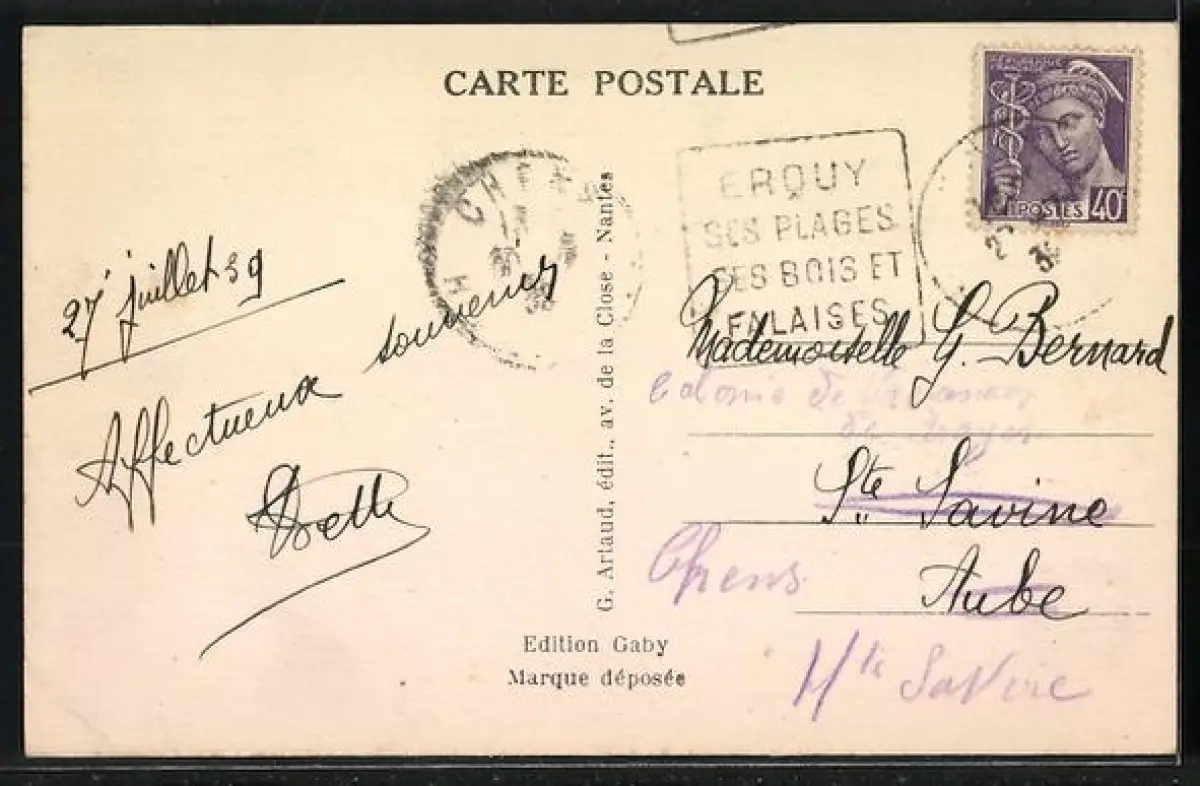 CARTE POSTALE
RÉPUBLIQUE
FRANÇAISE
POSTES 40
ERQUY
SES PLAGES
SES BOIS ET
FALAISES
27 juillet 39
Affectueux souvenir
G. Artaud, édit., av. de la Close - Nantes
Mademoiselle G. Bernard
Colonie de Vacances
de Troyes
Ste Savine
Aube
Chens
Hte Savoie
Edition Gaby
Marque déposée